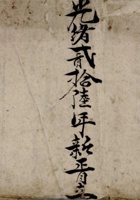 光緒貳拾陸年新正月立